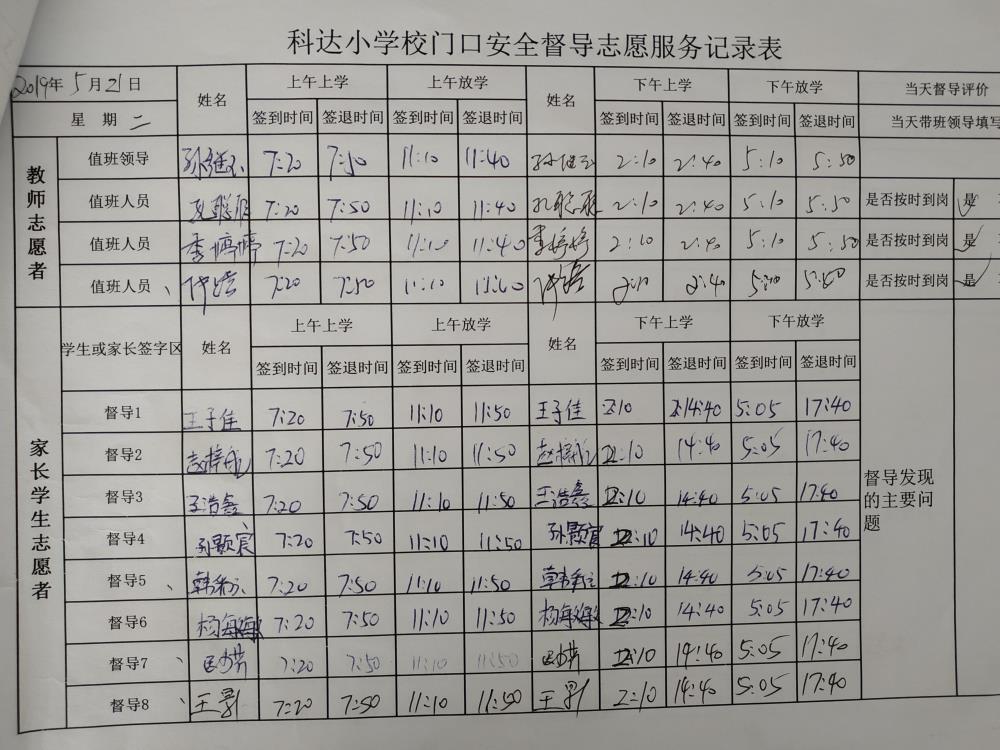 科达小学校门口安全督导志愿服务记录表
2019年5月21日 姓名 上午上学 上午放学 姓名 下午上学 下午放学 当天督导评价
星期二 签到时间 签退时间 签到时间 签退时间 签到时间 签退时间 签到时间 签退时间 当天带班领导填写
教师志愿者
值班领导 7:20 7:50 11:10 11:40 2:10 2:40 5:10 5:50
值班人员 7:20 7:50 11:10 11:40 2:10 2:40 5:10 5:50 是否按时到岗 是
值班人员 李婷婷 7:20 7:50 11:10 11:40 李婷婷 2:10 2:40 5:10 5:50 是否按时到岗 是
值班人员 7:20 7:50 11:10 11:40 2:10 2:40 5:10 5:50 是否按时到岗 是
家长学生志愿者
学生或家长签字区 姓名 上午上学 上午放学 姓名 下午上学 下午放学
签到时间 签退时间 签到时间 签退时间 签到时间 签退时间 签到时间 签退时间
督导1 王子佳 7:20 7:50 11:10 11:50 王子佳 2:10 14:40 5:05 17:40
督导2 7:20 7:50 11:10 11:50 2:10 14:40 5:05 17:40
督导3 王浩鑫 7:20 7:50 11:10 11:50 王浩鑫 2:10 14:40 5:05 17:40
督导4 孙颢宸 7:20 7:50 11:10 11:50 孙颢宸 2:10 14:40 5:05 17:40
督导5 7:20 7:50 11:10 11:50 2:10 14:40 5:05 17:40
督导6 7:20 7:50 11:10 11:50 2:10 14:40 5:05 17:40
督导7 7:20 7:50 11:10 11:50 2:10 14:40 5:05 17:40
督导8 王影 7:20 7:50 11:10 11:50 王影 2:10 14:40 5:05 17:40
督导发现
的主要问
题